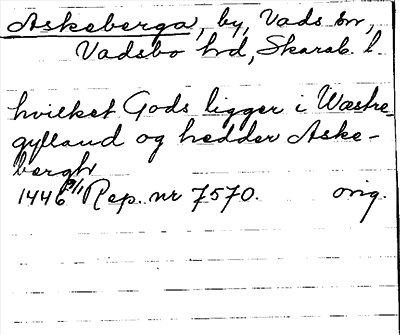 Askeberga, by, Vads sn,
Vadsbo hd, Skarab. l.
hvilket Gods ligger i Wæstre-
gylland og hedder Aske-
bergh
1446 8/11 Rep. nr 7570. orig.